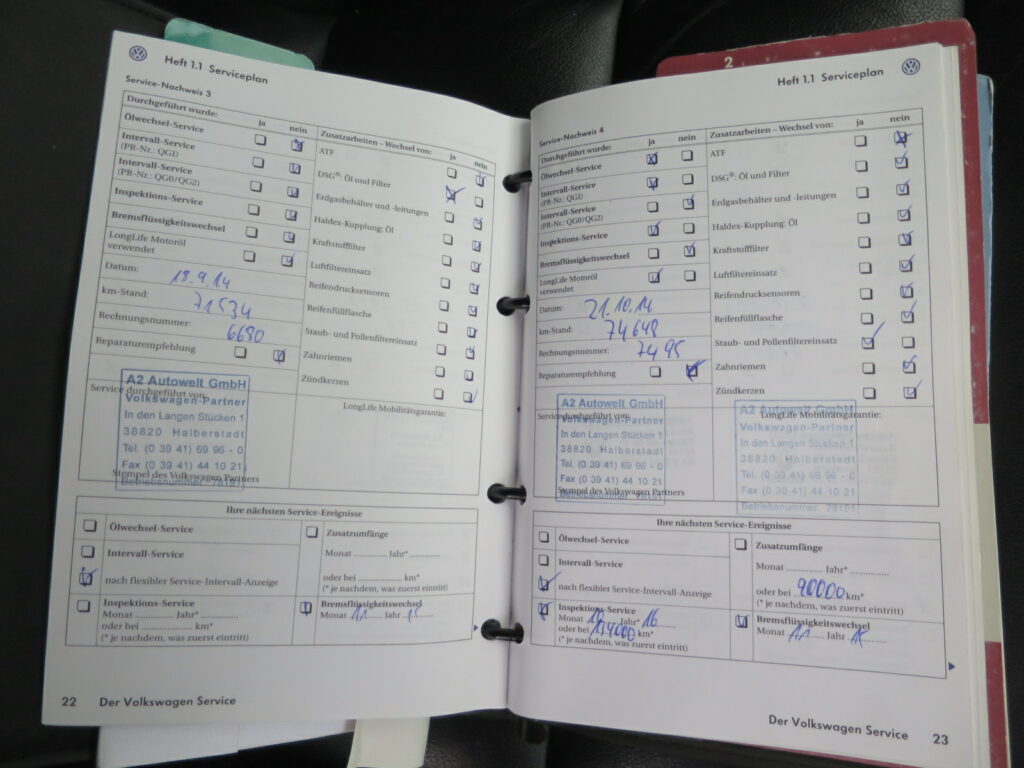 Heft 1.1 Serviceplan
Service-Nachweis 3
Durchgeführt wurde: ja nein
Ölwechsel-Service
Intervall-Service
(PR-Nr.: QG1)
Intervall-Service
(PR-Nr.: QG0/QG2)
Inspektions-Service
Bremsflüssigkeitswechsel
LongLife Motoröl
verwendet
Datum: 18.9.14
km-Stand: 71534
Rechnungsnummer: 6680
Reparaturempfehlung
Zusatzarbeiten – Wechsel von: ja nein
ATF
DSG®: Öl und Filter
Erdgasbehälter und -leitungen
Haldex-Kupplung: Öl
Kraftstofffilter
Luftfiltereinsatz
Reifendrucksensoren
Reifenfüllflasche
Staub- und Pollenfiltereinsatz
Zahnriemen
Zündkerzen
Service durchgeführt von:
A2 Autowelt GmbH
Volkswagen-Partner
In den Langen Stücken 1
38820 Halberstadt
Tel. (0 39 41) 69 96 - 0
Fax (0 39 41) 44 10 21
Betriebsnummer 78191
Stempel des Volkswagen Partners
LongLife Mobilitätsgarantie:
Ihre nächsten Service-Ereignisse
Ölwechsel-Service
Intervall-Service
nach flexibler Service-Intervall-Anzeige
Inspektions-Service
Monat ............ Jahr* ............
oder bei ............ km*
(* je nachdem, was zuerst eintritt)
Zusatzumfänge
Monat ............ Jahr* ............
oder bei ............ km*
(* je nachdem, was zuerst eintritt)
Bremsflüssigkeitswechsel
Monat 11 Jahr 15
22 Der Volkswagen Service
2
Heft 1.1 Serviceplan
Service-Nachweis 4
Durchgeführt wurde: ja nein
Ölwechsel-Service
Intervall-Service
(PR-Nr.: QG1)
Intervall-Service
(PR-Nr.: QG0/QG2)
Inspektions-Service
Bremsflüssigkeitswechsel
LongLife Motoröl
verwendet
Datum: 21.10.14
km-Stand: 74648
Rechnungsnummer: 7495
Reparaturempfehlung
Zusatzarbeiten – Wechsel von: ja nein
ATF
DSG®: Öl und Filter
Erdgasbehälter und -leitungen
Haldex-Kupplung: Öl
Kraftstofffilter
Luftfiltereinsatz
Reifendrucksensoren
Reifenfüllflasche
Staub- und Pollenfiltereinsatz
Zahnriemen
Zündkerzen
Service durchgeführt von:
A2 Autowelt GmbH
Volkswagen-Partner
In den Langen Stücken 1
38820 Halberstadt
Tel. (0 39 41) 69 96 - 0
Fax (0 39 41) 44 10 21
Betriebsnummer 78191
Stempel des Volkswagen Partners
LongLife Mobilitätsgarantie:
A2 Autowelt GmbH
Volkswagen-Partner
In den Langen Stücken 1
38820 Halberstadt
Tel. (0 39 41) 69 96 - 0
Fax (0 39 41) 44 10 21
Betriebsnummer 78191
Ihre nächsten Service-Ereignisse
Ölwechsel-Service
Intervall-Service
nach flexibler Service-Intervall-Anzeige
Inspektions-Service
Monat Jahr* 16
oder bei km*
(* je nachdem, was zuerst eintritt)
Zusatzumfänge
Monat ............ Jahr* ............
oder bei 90000 km*
(* je nachdem, was zuerst eintritt)
Bremsflüssigkeitswechsel
Monat 11 Jahr 15
Der Volkswagen Service 23